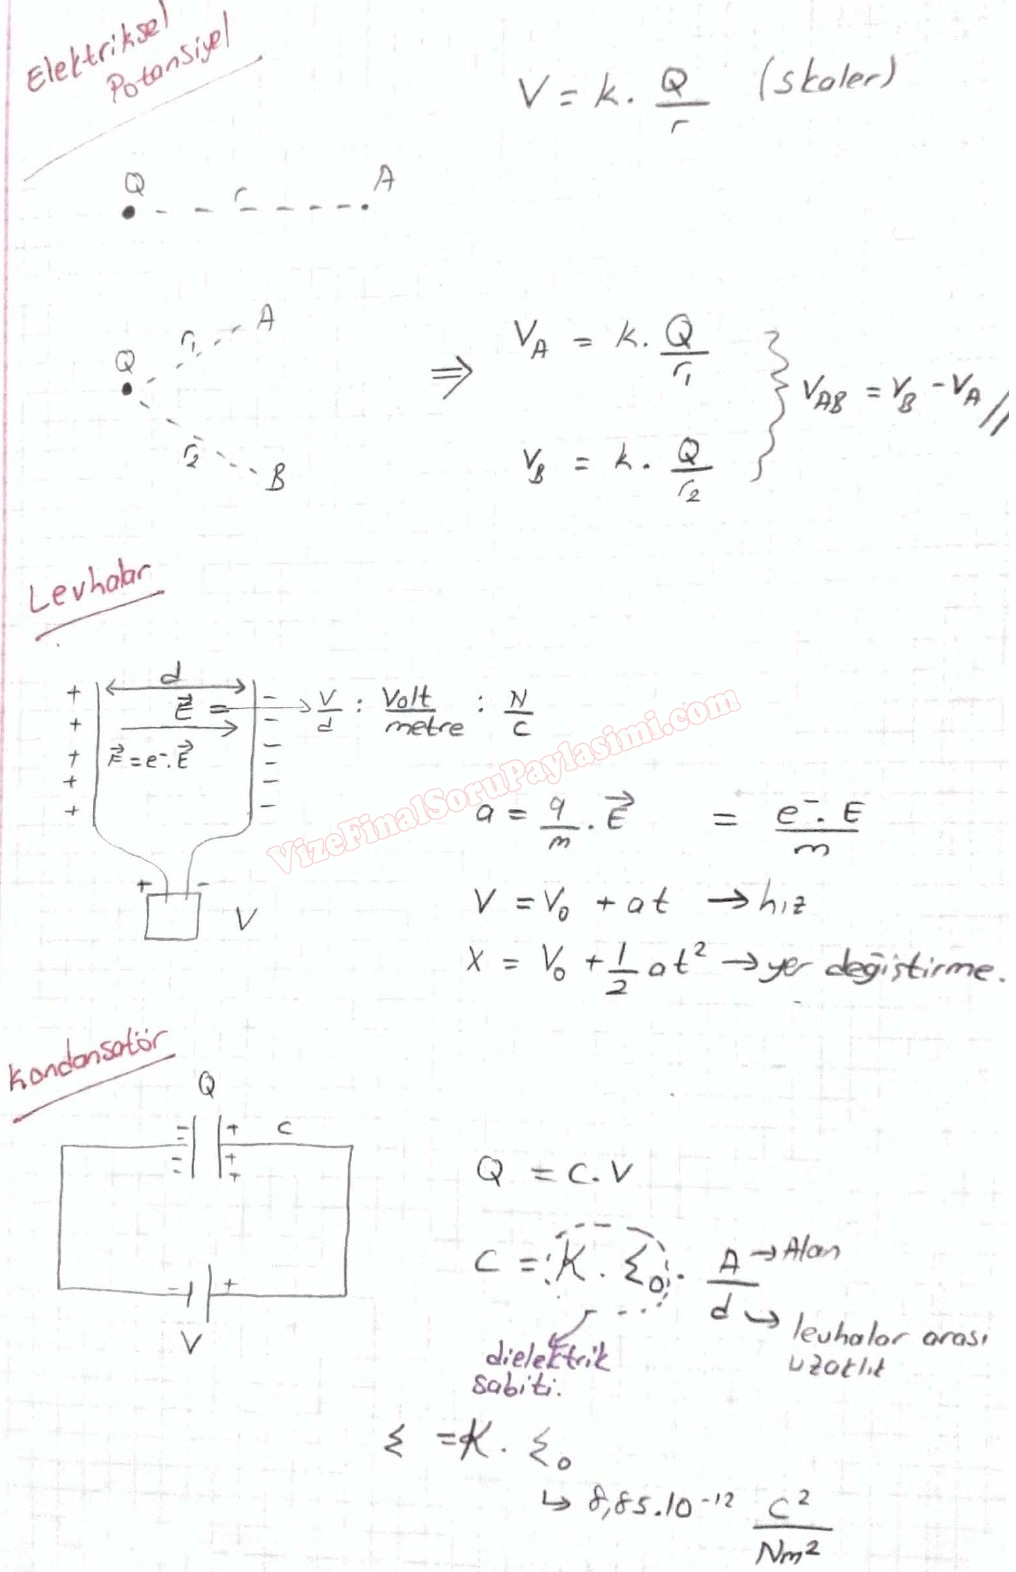 Elektriksel
Potansiyel
V = k. Q/r (skaler)
Q r A
Q r₁ A
r₂ B
⇒
V_A = k. Q/r₁
V_B = k. Q/r₂
V_AB = V_B - V_A //
Levhalar
d
E⃗ = → V/d : Volt/metre : N/C
F⃗ = e⁻. E⃗
+ + + + +
- - - - -
+ -
V
VizeFinalSoruPaylasimi.com
a = q/m . E⃗ = e⁻. E/m
V = V₀ + at → hız
X = V₀ + 1/2 at² → yer değiştirme.
Kondansatör
Q
C
- +
V
Q = C.V
C = K. Ɛ₀. A/d
A → Alan
d → levhalar arası
uzaklık
dielektrik
sabiti.
Ɛ = K. Ɛ₀
↳ 8,85.10⁻¹² C²/Nm²